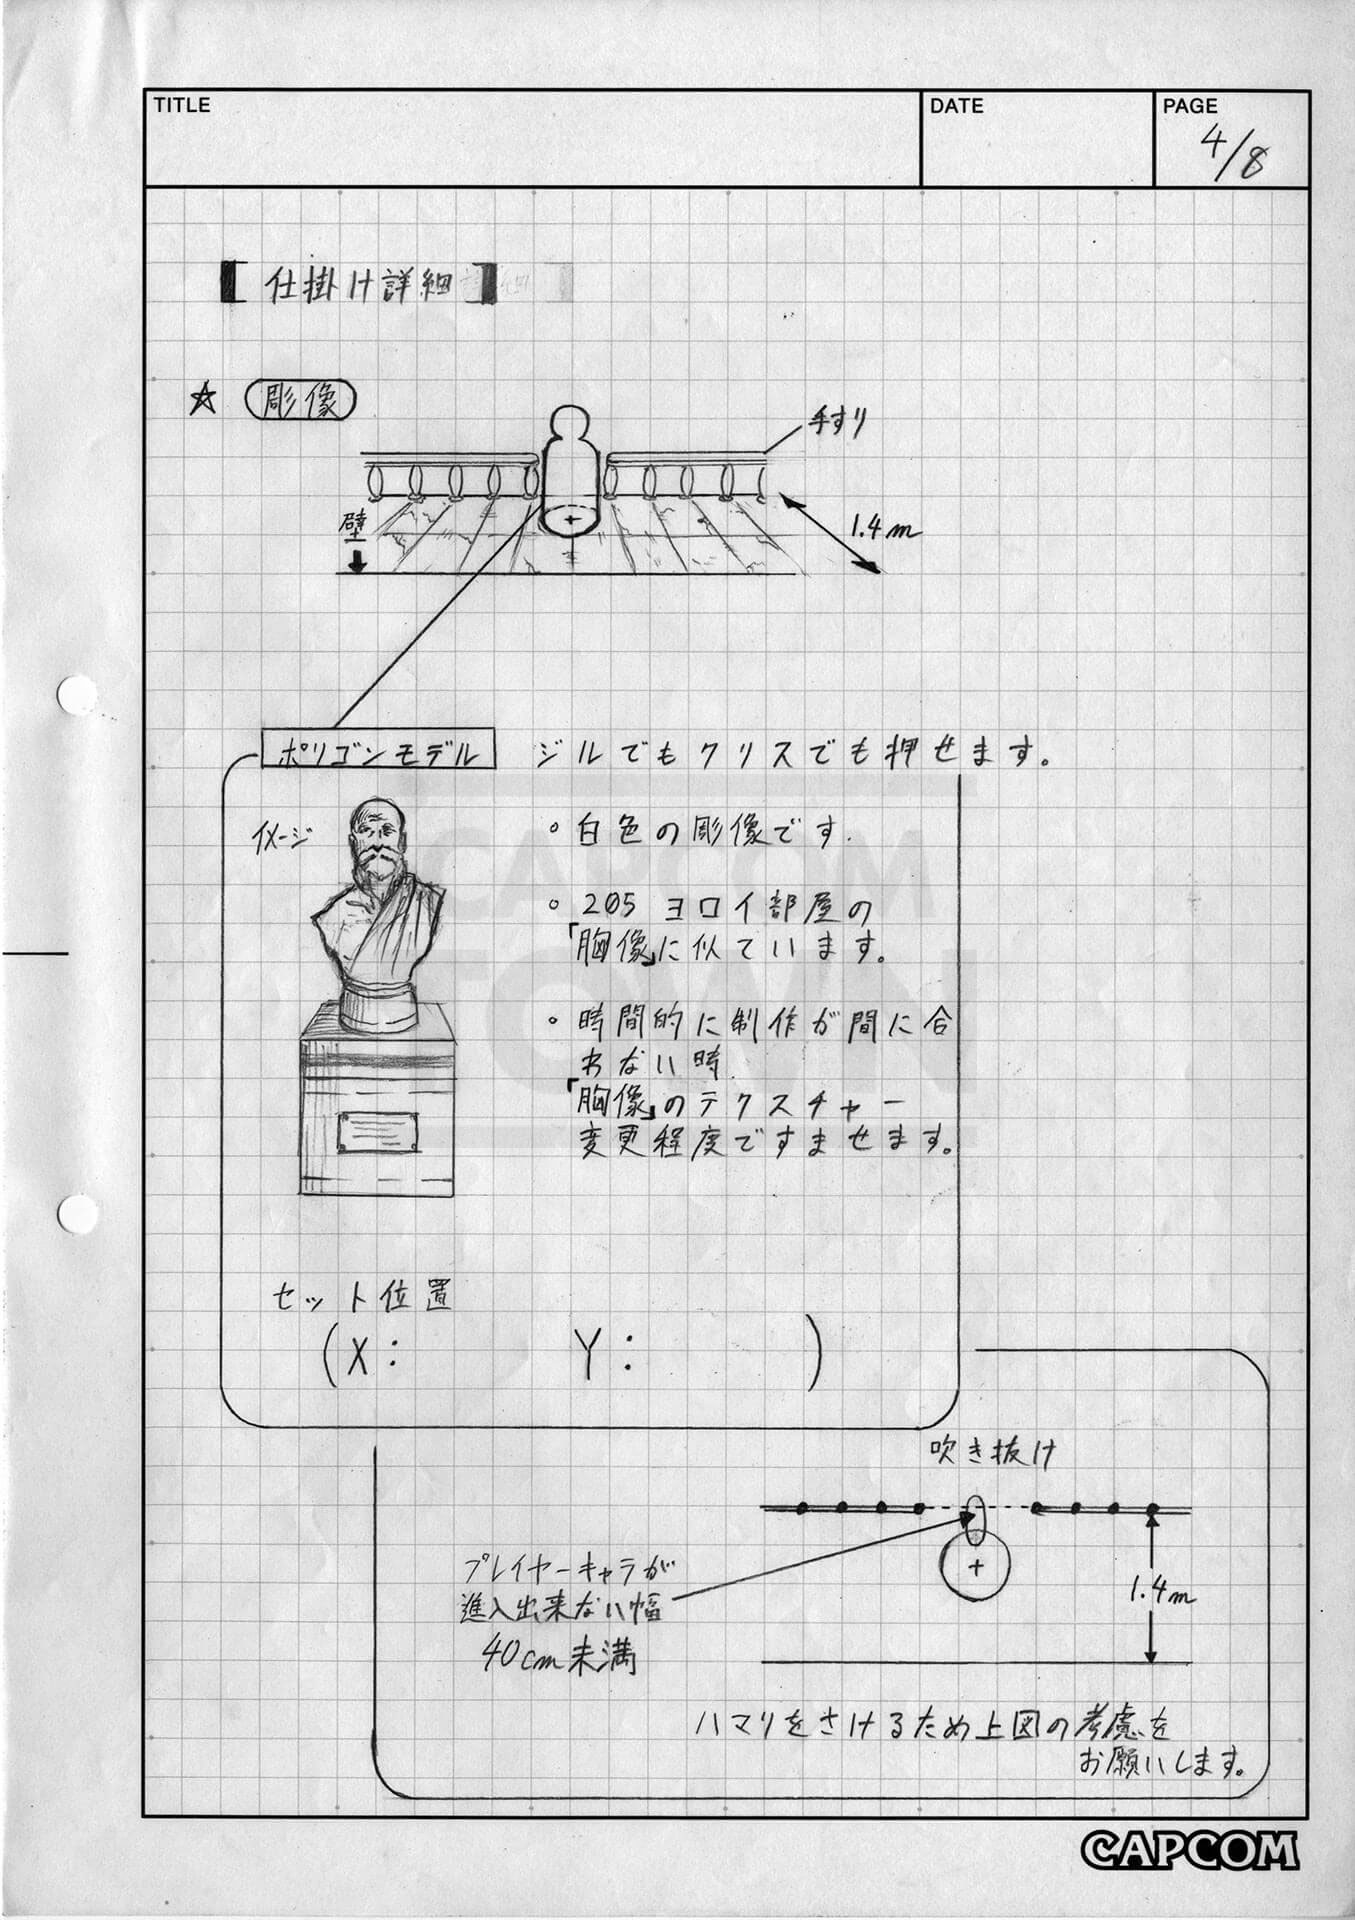 TITLE
DATE
PAGE
4/8
【仕掛け詳細】
☆ 彫像
手すり
壁
1.4m
ポリゴンモデル
ジルでもクリスでも押せます。
イメージ
。白色の彫像です.
。205 ヨロイ部屋の
「胸像」に似ています。
。時間的に制作が間に合
わない時
「胸像」のテクスチャー
変更程度ですませます。
セット位置
(X: Y: )
吹き抜け
プレイヤーキャラが
進入出来ない幅
40cm未満
1.4m
ハマリをさけるため上図の考慮を
お願いします。
CAPCOM
TOWN
CAPCOM